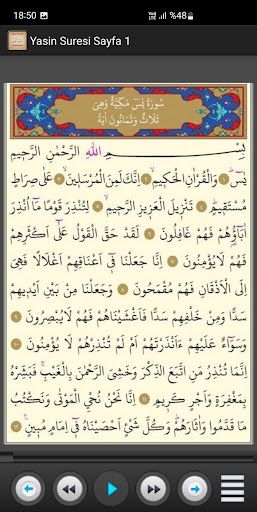 18:50
%48
Yasin Suresi Sayfa 1
سُورَةُ يٰسٓ مَكِّيَّةٌ وَهِيَ
ثَلَاثٌ وَثَمَانُونَ اٰيَةً
بِسْمِ اللّٰهِ الرَّحْمٰنِ الرَّحٖيمِ
يٰسٓ ﴿١﴾ وَالْقُرْاٰنِ الْحَكٖيمِ ﴿٢﴾ اِنَّكَ لَمِنَ الْمُرْسَلٖينَ ﴿٣﴾ عَلٰى صِرَاطٍ
مُسْتَقٖيمٍ ﴿٤﴾ تَنْزٖيلَ الْعَزٖيزِ الرَّحٖيمِ ﴿٥﴾ لِتُنْذِرَ قَوْمًا مَٓا اُنْذِرَ
اٰبَٓاؤُ۬هُمْ فَهُمْ غَافِلُونَ ﴿٦﴾ لَقَدْ حَقَّ الْقَوْلُ عَلٰٓى اَكْثَرِهِمْ
فَهُمْ لَا يُؤْمِنُونَ ﴿٧﴾ اِنَّا جَعَلْنَا فٖٓي اَعْنَاقِهِمْ اَغْلَالًا فَهِيَ
اِلَى الْاَذْقَانِ فَهُمْ مُقْمَحُونَ ﴿٨﴾ وَجَعَلْنَا مِنْ بَيْنِ اَيْدٖيهِمْ
سَدًّا وَمِنْ خَلْفِهِمْ سَدًّا فَاَغْشَيْنَاهُمْ فَهُمْ لَا يُبْصِرُونَ ﴿٩﴾
وَسَوَٓاءٌ عَلَيْهِمْ ءَاَنْذَرْتَهُمْ اَمْ لَمْ تُنْذِرْهُمْ لَا يُؤْمِنُونَ ﴿١٠﴾
اِنَّمَا تُنْذِرُ مَنِ اتَّبَعَ الذِّكْرَ وَخَشِيَ الرَّحْمٰنَ بِالْغَيْبِ فَبَشِّرْهُ
بِمَغْفِرَةٍ وَاَجْرٍ كَرٖيمٍ ﴿١١﴾ اِنَّا نَحْنُ نُحْيِ الْمَوْتٰى وَنَكْتُبُ
مَا قَدَّمُوا وَاٰثَارَهُمْ وَكُلَّ شَيْءٍ اَحْصَيْنَاهُ فٖٓي اِمَامٍ مُبٖينٍ ﴿١٢﴾